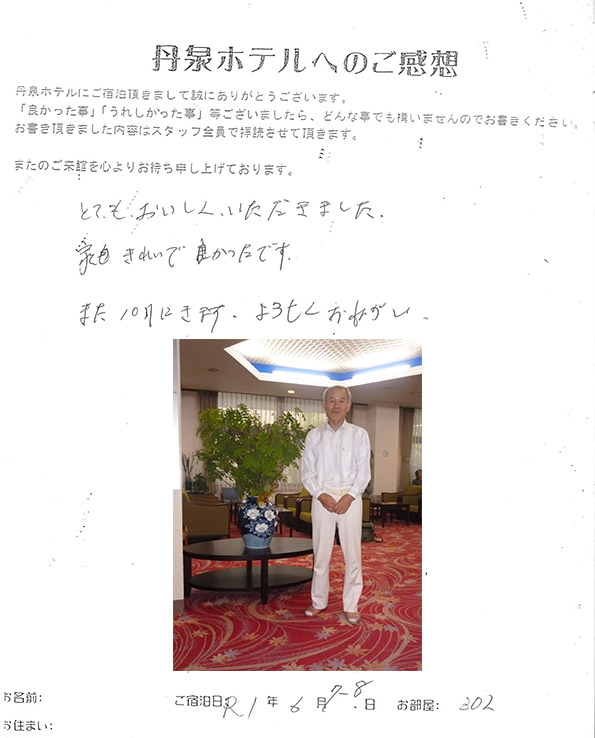 丹泉ホテルへのご感想
丹泉ホテルにご宿泊頂きまして誠にありがとうございます。
「良かった事」「うれしかった事」等ございましたら、どんな事でも構いませんのでお書きください。
お書き頂きました内容はスタッフ全員で拝読させて頂きます。
またのご来館を心よりお待ち申し上げております。
とてもおいしくいただきました.
きれいで良かったです.
また10月にきます、よろしくおねがい、
お名前:
ご宿泊日: R1年6月7-8日 お部屋: 302
お住まい: